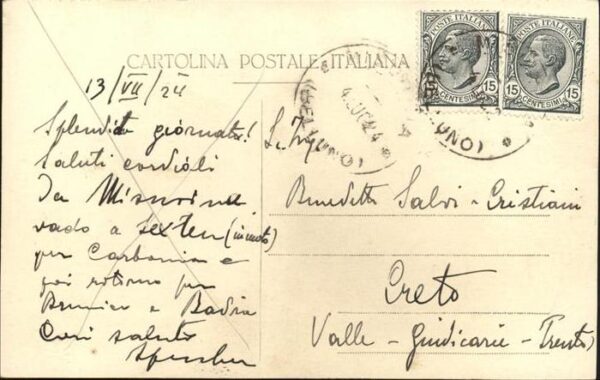 CARTOLINA POSTALE ITALIANA
POSTE ITALIANE
15 CENTESIMI 15
POSTE ITALIANE
15 CENTESIMI 15
(BELLUNO)
(BELLUNO)
13/VII/24
Splendida giornata!
Saluti cordiali
Da Misurina
vado a Sexten (in moto)
per Carbonin e
poi ritorno per
Brunico e Badia
Cari saluti
Benedetto Salvi-Cristiani
Creto
Valle-Giudicarie-Trento